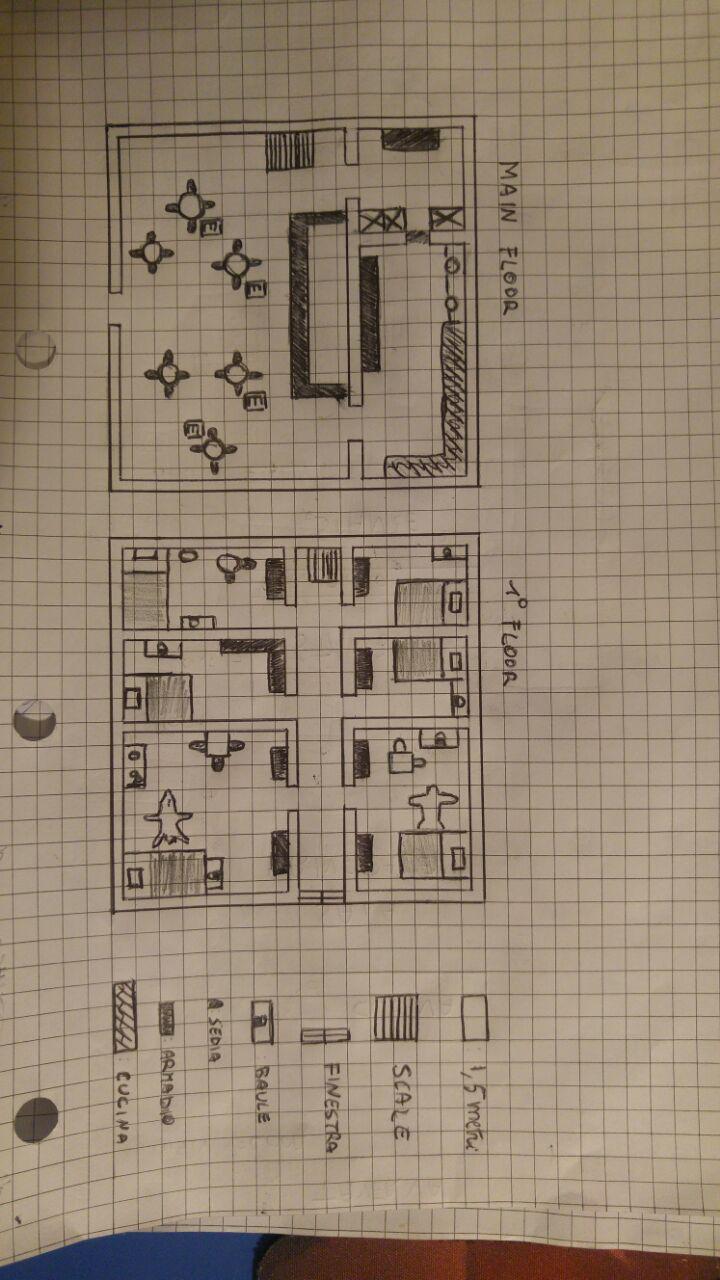 MAIN FLOOR
E
E
E
E
1° FLOOR
: 1,5 metri
SCALE
FINESTRA
: BAULE
SEDIA
: ARMADIO
: CUCINA